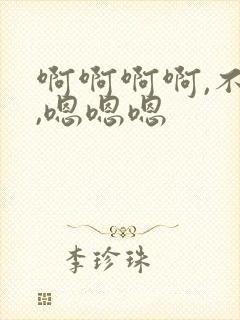 啊啊啊啊,不
,嗯嗯嗯
李珍珠